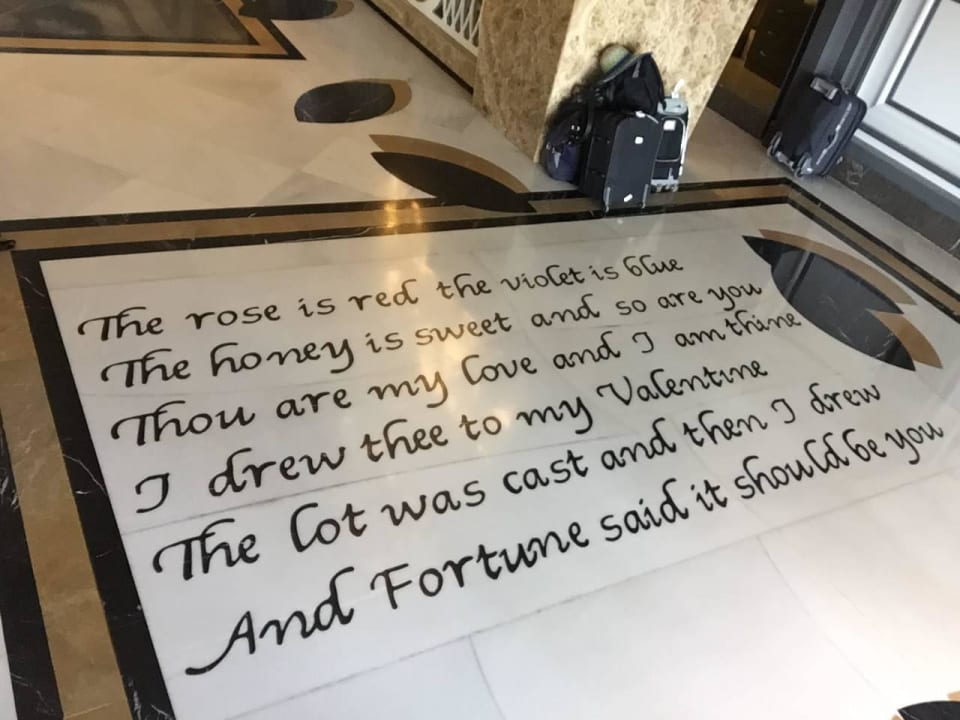 The rose is red the violet is blue
The honey is sweet and so are you
Thou are my love and I am thine
I drew thee to my Valentine
The lot was cast and then I drew
And Fortune said it should be you